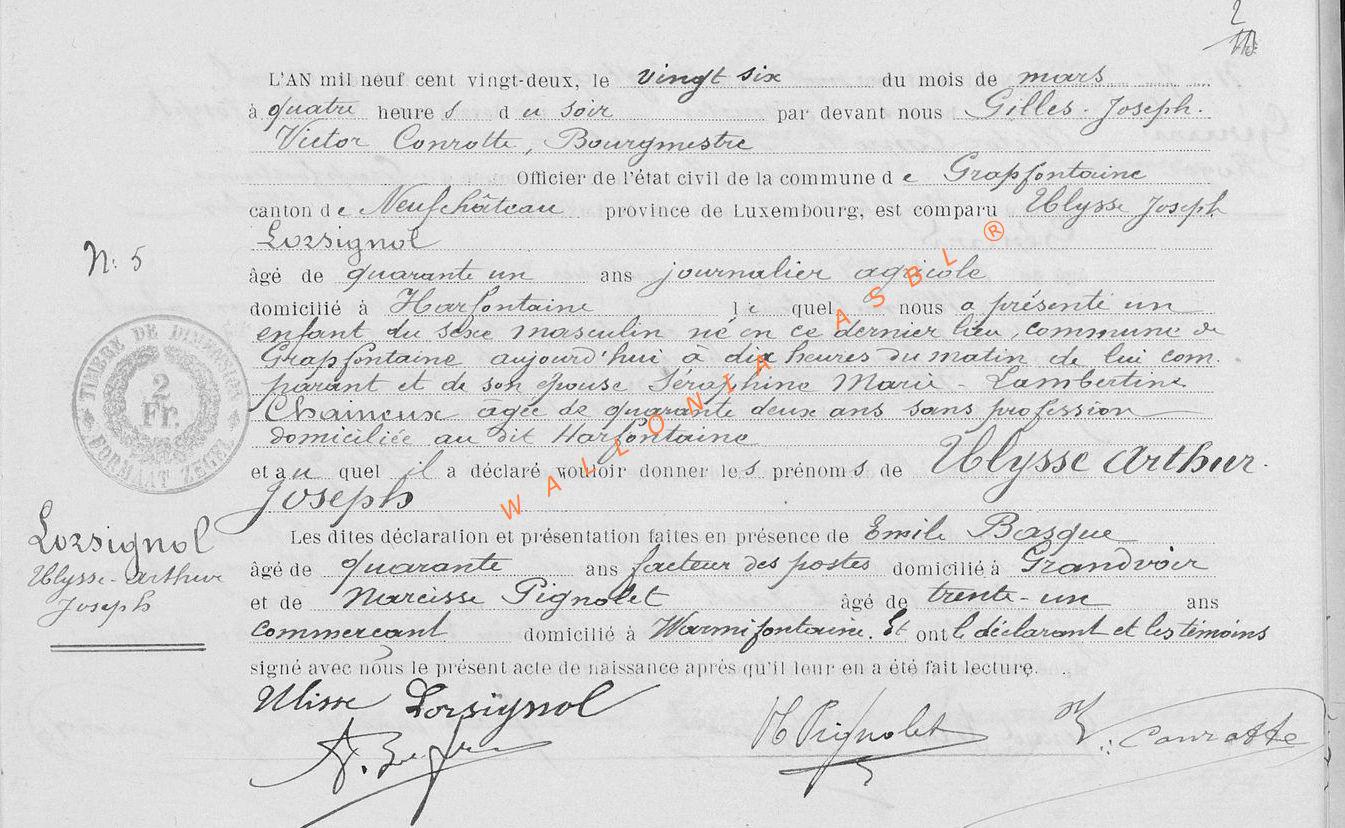 2
L'AN mil neuf cent vingt-deux, le vingt six du mois de mars
à quatre heures du soir par devant nous Gilles-Joseph-
Victor Conrotte, Bourgmestre
Officier de l'état civil de la commune de Grapfontaine
canton de Neufchâteau province de Luxembourg, est comparu Ulysse Joseph
Lorsignol
N: 5
âgé de quarante un ans journalier agricole
domicilié à Harfontaine lequel nous a présenté un
enfant du sexe masculin né en ce dernier lieu, commune de
Grapfontaine aujourd'hui à dix heures du matin de lui com-
parant et de son épouse Séraphine Marie-Lambertine
Chaineux agée de quarante deux ans sans profession
domiciliée au dit Harfontaine
et auquel il a déclaré vouloir donner les prénoms de Ulysse Arthur-
Joseph
TIMBRE DE DIMENSION
2
Fr.
FORMAAT ZEGEL
WALLONIA ASBL ®
Lorsignol
Ulysse-Arthur
Joseph
Les dites déclaration et présentation faites en présence de Emile Basque
âgé de quarante ans facteur des postes domicilié à Grandvoir
et de Narcisse Pignolet âgé de trente-un ans
commerçant domicilié à Warmifontaine. Et ont le déclarant et les témoins
signé avec nous le présent acte de naissance après qu'il leur en a été fait lecture.
Ulisse Lorsignol
Pignolet
Conrotte